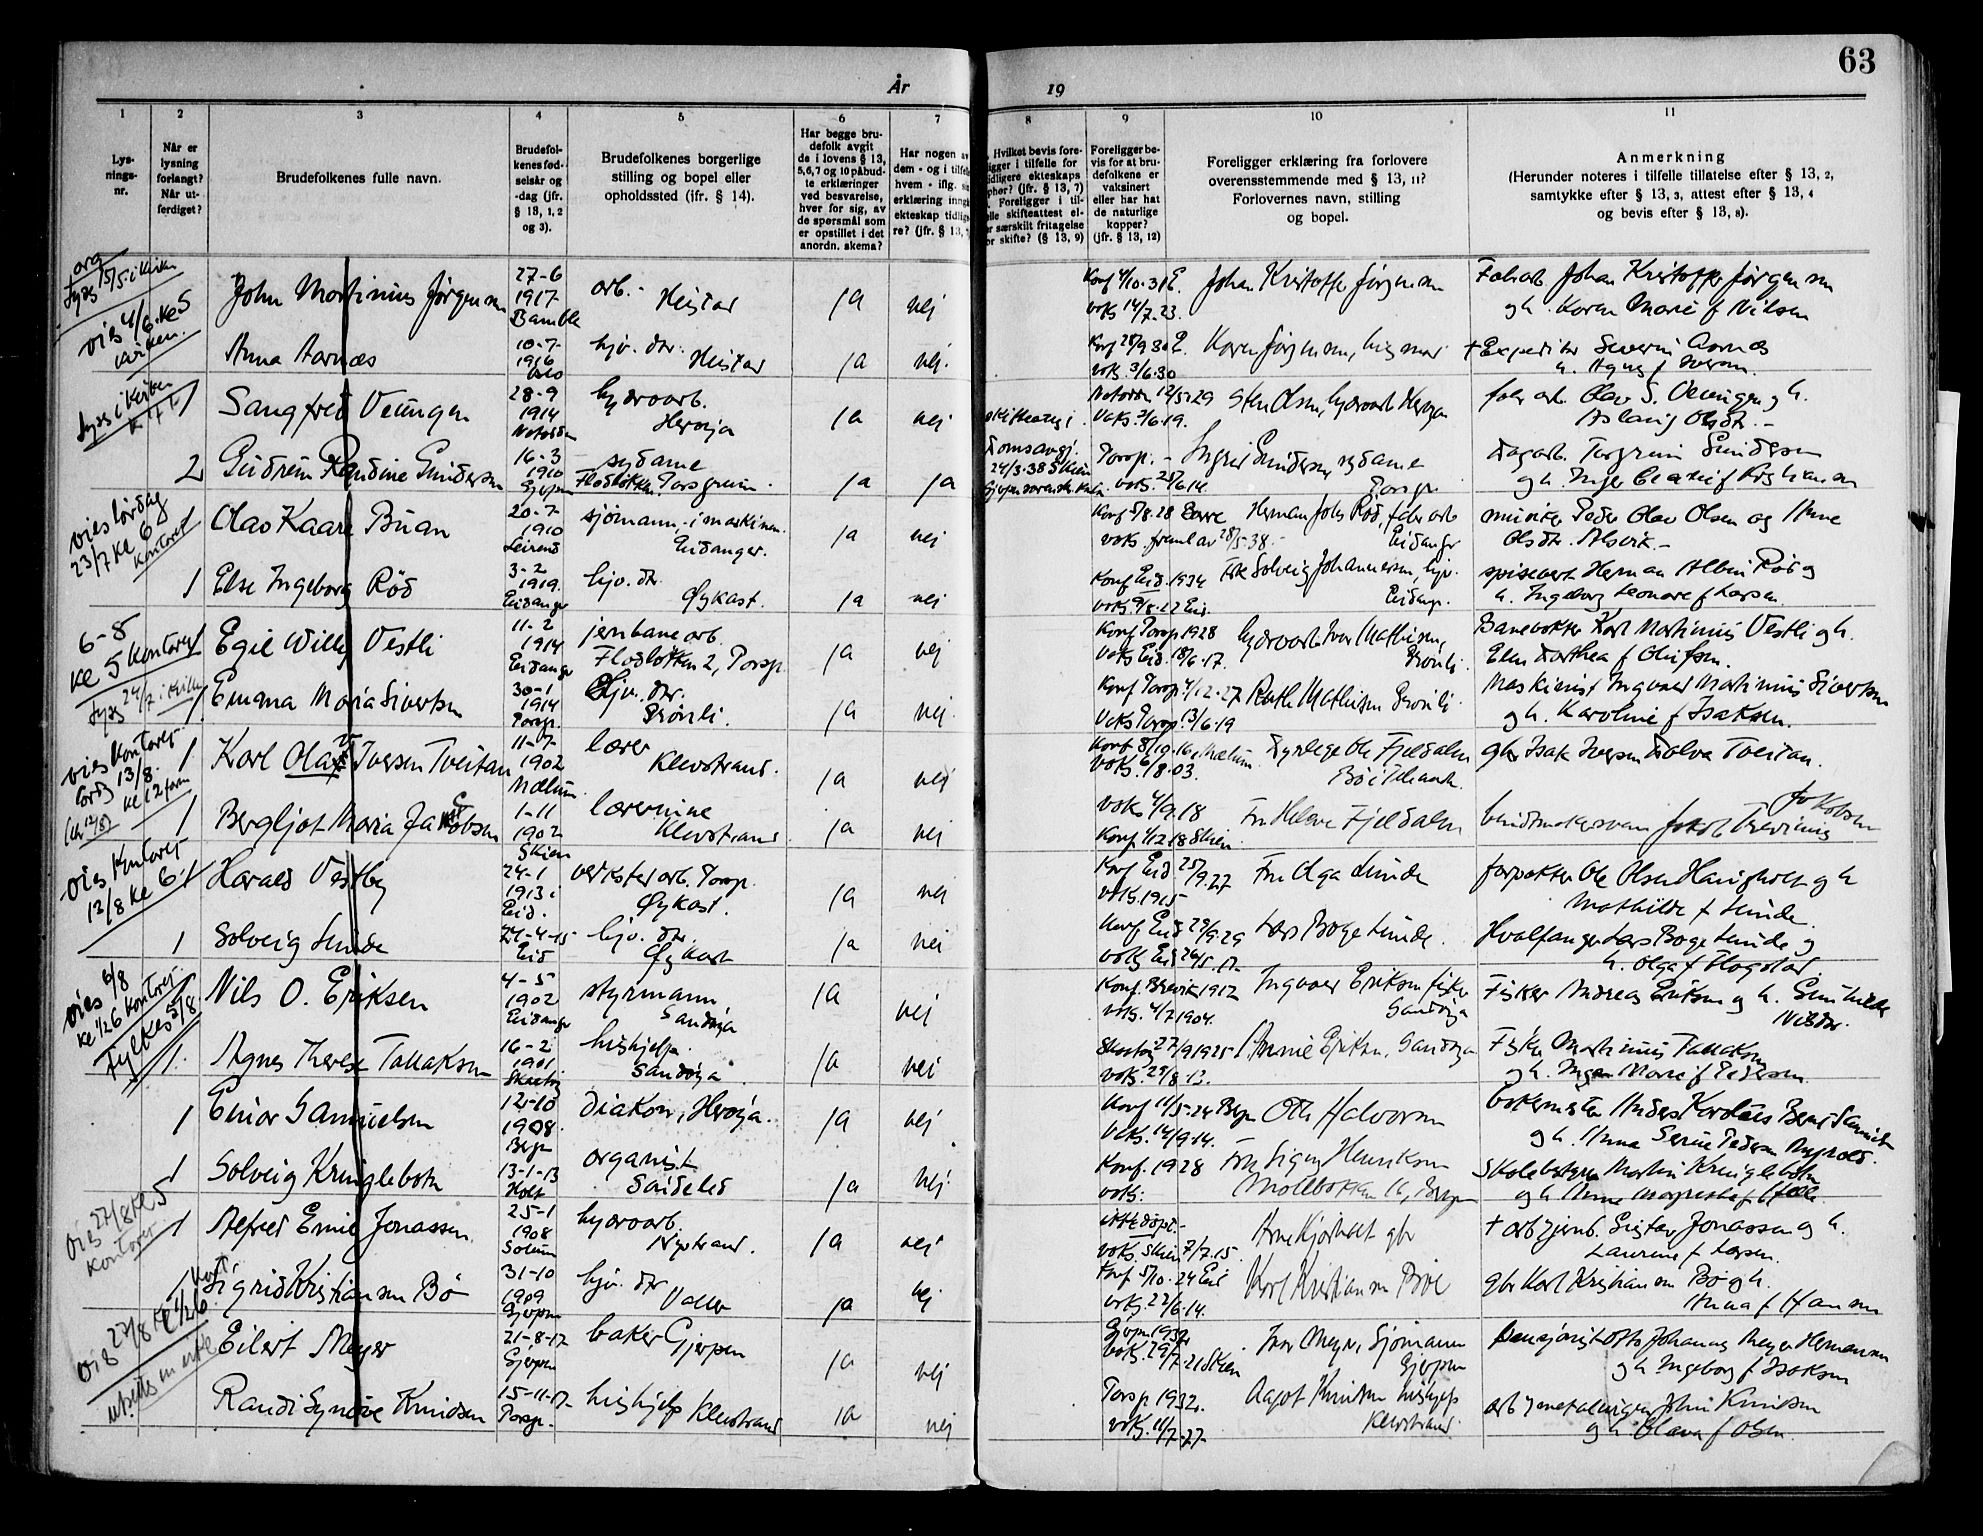 63
År
19
1
2
3
4
5
6
7
8
9
10
11
Lys-
nings-
nr.
Når er
lysning
forlangt?
Når ut-
ferdiget?
Brudefolkenes fulle navn.
Brudefol-
kenes fød-
selsår og
-dag (jfr.
§ 13, 1, 2
og 3).
Brudefolkenes borgerlige
stilling og bopel eller
opholdssted (ifr. § 14).
Har begge bru-
defolk avgit
de i lovens § 13,
5, 6, 7 og 10 påbud-
te erklæringer
ved besvarelse,
hver for sig, av
de spørsmål som
er opstillet i det
anordn. skema?
Har nogen av
dem - og i tilfel
hvem - iflg. si
erklæring inng
ekteskap tidlig
re? (jfr. § 13,
Hvilket bevis fore-
ligger i tilfelle for
tidligere ekteskaps
opher? (jfr. § 13, 7)
Foreligger i til-
elle skifteattest el-
er særskilt fritagelse
or skifte? (§ 13, 9)
Foreligger be-
vis for at bru-
defolkene er
vaksinert
eller har hat
de naturlige
kopper?
(jfr. § 13, 12)
Foreligger erklæring fra forlovere
overensstemmende med § 13, 11?
Forlovernes navn, stilling
og bopel.
Anmerkning
(Herunder noteres i tilfelle tillatelse efter § 13, 2,
samtykke efter § 13, 3, attest efter § 13, 4
og bevis efter § 13, 8).
lyst 15/5 i kirken
vies 4/6 ke 5
kirken.
John Martinius Jørgensen
27-6
1917
Bamble
arb. -
Heistad
ja
nej
Konf 4/10.31 E.
vaks 14/7.23.
Johan Kristoffer Jørgensen
Fabarb Johan Kristoffer Jørgensen
og h. Karen Marie f Nilsen
Anna Aarnes
10-7-
1916
Oslo
hjv. dtr.
Heistad
ja
nej.
Konf 28/9 30 E.
vaks. 3/6.30
Karen Jørgensen, husmor
+ Expeditør Severin Aarnes
h. Agnes f Iversen.
lyst i kirken
1
Sangfred Veungen
28-9
1914
Notodden
hydroarb.
Herøya
ja
nej
Notodden 12/5.29
vaks. 3/6.19.
Sten Olsen, hydroarb Herøya
fabr arb. Olav S. Veungen og h.
Aslaug Olsdtr. -
2
Gudrun Randine Gundersen
16-3
1910
Gjerpen
sydame
Flodløkken Porsgrunn.
ja
ja
Domsavgj.
24/3.38 Skien
Porsgr. -
vaks. 25/6.14.
Ingrid Gundersen, sydame
Porsgr.
dagarb. Torgrim Gundersen
vies lørdag
23/7 ke 6
kontoret
1
Olav Kaare Buan
20-7-
1910
sjømann - i maskinen.
Eidanger.
ja
nej
Konf 5/8.28
vaks. freml av 28/5-38.-
Herman Johs Rød, fabr arb
Eidanger
murer Peder Olav Olsen og Anne
Olsdtr. Alsvik. -
1
Else Ingeborg Rød
3-2
1919.
Eidanger
hjv. dtr.
Øykast.
ja
nej
Konf Eid. 1934
vaks 9/8.27 Eid.
Frk Solveig Johannesen, hjv.
Eidangr.
spisevert Herman Albin Rød og
h. Ingeborg Leonore f Larsen.
6-8
ke 5 kontoret
1
Egil Willy Vestli
11-2
1914
Eidanger
jernbanearb.
Flodløkken 2, Porsgr.
ja
nej
Konf Porsgr 1928
vaks Eid. 18/6-17.
hydroarb Ivar Mathisen,
Grønli.
Banevokter Karl Martinius Vestli og h.
Elen Dorthea f Olufsen.
lyst 24/7 i kirken
1.
Emma Maria Sivertsen
30-1
1914
Porsgr.
hjv. dtr.
Grønli.
ja
nej.
Konf Porsgr 4/12-27
vaks Porsgr. 13/6.19
Ruth Mathisen Grønli.
Maskinist Ingvald Martinius Sivertsen
og h. Karoline f Isaksen.
vies kontoret
lørd 13/8.
ke 12 form
(lh 12/8)
1
Karl Olaf Iversen Tveitan
11-7-
1902
Mælum
lærer
Klevstrand.
ja
nej
Konf 8/10.16, Mælum
vaks. 6/8.03.
Dyrlege Ole Fjeldalen
Bø i Telemark
gbr Isak Iversen Dalva Tveitan.
1
Bergljot Maria Jakobsen
1-11
1902
Skien
lærerinne
Klevstrand
ja
nej
vaks 4/9.18
Konf 1/12 18 Skien
Fru Helene Fjeldalen
Jakobsen
vies kontoret
12/8 ke 6
1
Harald Vestby
24-1
1913
Eid.
verkstedarb. Porsgr.
Øykast.
ja
nej
Konf Eid 25/9.27
vaks. 1915
Fru Olga Lunde
forpakter Ole Olsen Haugholt og h
Mathilde f Lunde.
1
Solveig Lunde
27-4-15
Eid
hjv. dtr
Øykast
ja
nej
Konf Eid 29/9.29
vaks Eid 26/5.17.
Lars Boge Lunde.
Hvalfanger Lars Boge Lunde og
h. Olga f Flogstad
vies 6/8
ke 1/26 kontoret
1
Nils O. Eriksen
4-5
1902
Eidanger
styrmann
Sandøya
ja
nej
Konf. Brevik 1917
vaks. 4/7 1904.
Ingvald Eriksen fisker
Sandøya
Fisker Andreas Eriksen og h. Gunhilde
Nilsdtr.
Fylkes 5/8
1.
Agnes Therese Tallaksen
16-2
1901
Skaatøy
hushjelp.
Sandøya
ja
nej
Skaatøy 27/9 1925
vaks. 29/8.13.
Annie Eriksen, Sandøya
Fisker Martinius Tallaksen
og h. Ingen Marie f Pedersen.
1
Einar Samuelsen
12-10
1908.
Bergen
diakon, Herøya.
ja
nej
Konf 11/5-24 Bergn
vaks. 14/9.14.
Oth Halvorsen
1
Solveig Kringlebotn
13-1-13
Holt
organist
Søndeled
ja
nej.
Konf. 1928
vaks:
Fru Signy Henriksen
Møllebakken 16, Bergen
Skolebestyrer Martin Kringlebotn
og h. Anne Margrethe f Helle.
vies 27/8 ke 5
kontoret
1
Alfred Emil Jonassen.
25-1
1908
Solum
hydroarb.
Nystrand.
ja
nej
ikke døpt. -
vaks. Skien 7/7.15.
Arne Kjørholt gbr
+ arb v jernb. Gustav Jonassen og h.
Laurine f Larsen.
1
Sigrid Kristiansen Bø
31-10
1909
Gjerpen
hjv. dtr
Valler
ja
nej
Konf 5/10.24 Eid
vaks. 22/6.14.
Karl Kristiansen Bøe
gbr Karl Kristiansen Bø og h.
Anna f Hansen
vies 27/8
Eilert Meyer
21-8-12
Gjerpen
baker Gjerpen
ja
nej
vaks. 29/7.21 Skien
Ivar Meyer, Sjømann
Gjerpen
Pensjonist Otto Johannes Meyer Hermansen
og h. Ingeborg f Isaksen
Randi Synøve Knudsen
15-11-12
Porsgr.
hushjelp Klevstrand
ja
nej
Porsgr 1932.
vaks. 11/7-27-
Aagot Knudsen hushjelp
Klevstrand
arb v metallurgen John Knudsen
og h. Olava f Olsen.